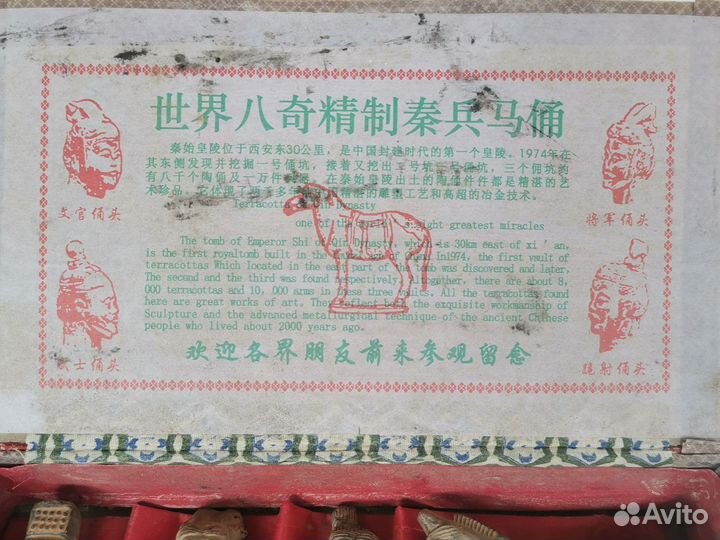 世界八奇精制秦兵马俑
秦始皇陵位于西安东30公里，是中国封建时代的第一个皇陵。1974年在
其东侧发现并挖掘一号俑坑，接着又挖出二号坑三号俑坑，三个俑坑约
有八千个陶俑及一万件 。在秦始皇陵出土的陶俑件件都是精湛的艺
术珍品，它体现了两千多年 精湛的雕塑工艺和高超的冶金技术。
Terracotta of Qin Dynasty
one of the eight greatest miracles
The tomb of Emperor Shi of Qin Dynasty, which is 30km east of xi'an,
is the first royaltomb built in the of China. In1974, the first vault of
terracottas Which located in the east part of the tomb was discovered and later.
The second and the third was found respectively. Altogether, there are about 8,
000 terracottas and 10, 000 arms in these three vaults. All the terracottas found
here are great works of art. They reflect both the exquisite workmanship of
Sculpture and the advanced metallurgical technique of the ancient Chinese
people who lived about 2000 years ago.
欢迎各界朋友前来参观留念
文官俑头
将军俑头
武士俑头
跪射俑头
Avito